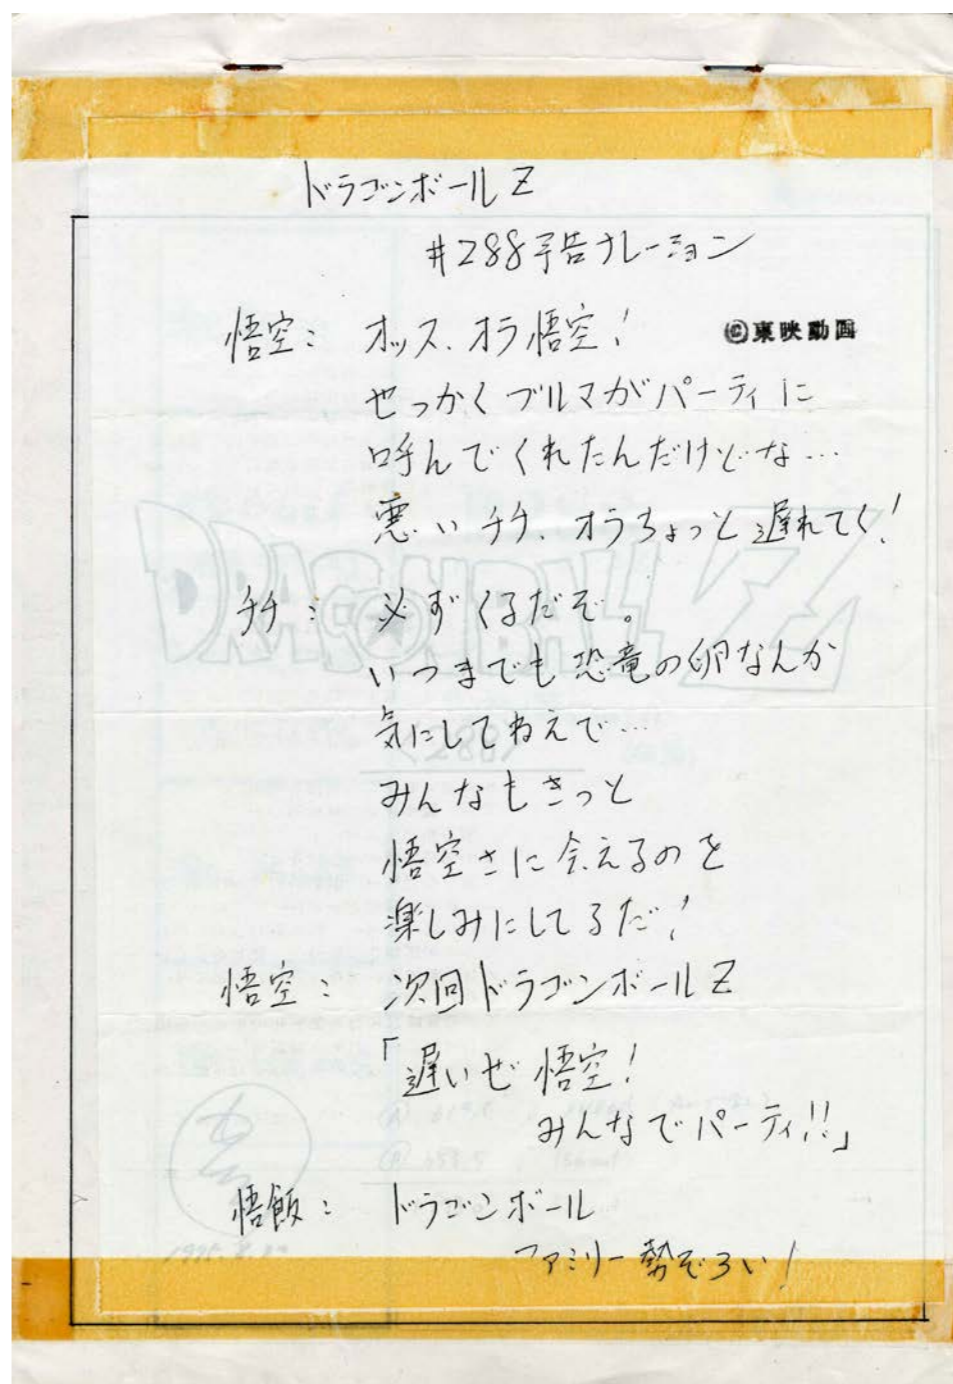 ドラゴンボールZ
#288予告ナレーション
©東映動画
悟空： オッス、オラ悟空！
せっかくブルマがパーティに
呼んでくれたんだけどな…
悪いチチ、オラちょっと遅れてく！
チチ： 必ずくるだぞ。
いつまでも恐竜の卵なんか
気にしてねえで…
みんなもきっと
悟空さに会えるのを
楽しみにしてるだ！
悟空： 次回ドラゴンボールZ
「遅いぜ悟空！
みんなでパーティ!!」
悟飯： ドラゴンボール
ファミリー勢ぞろい！
DRAGONBALL Z